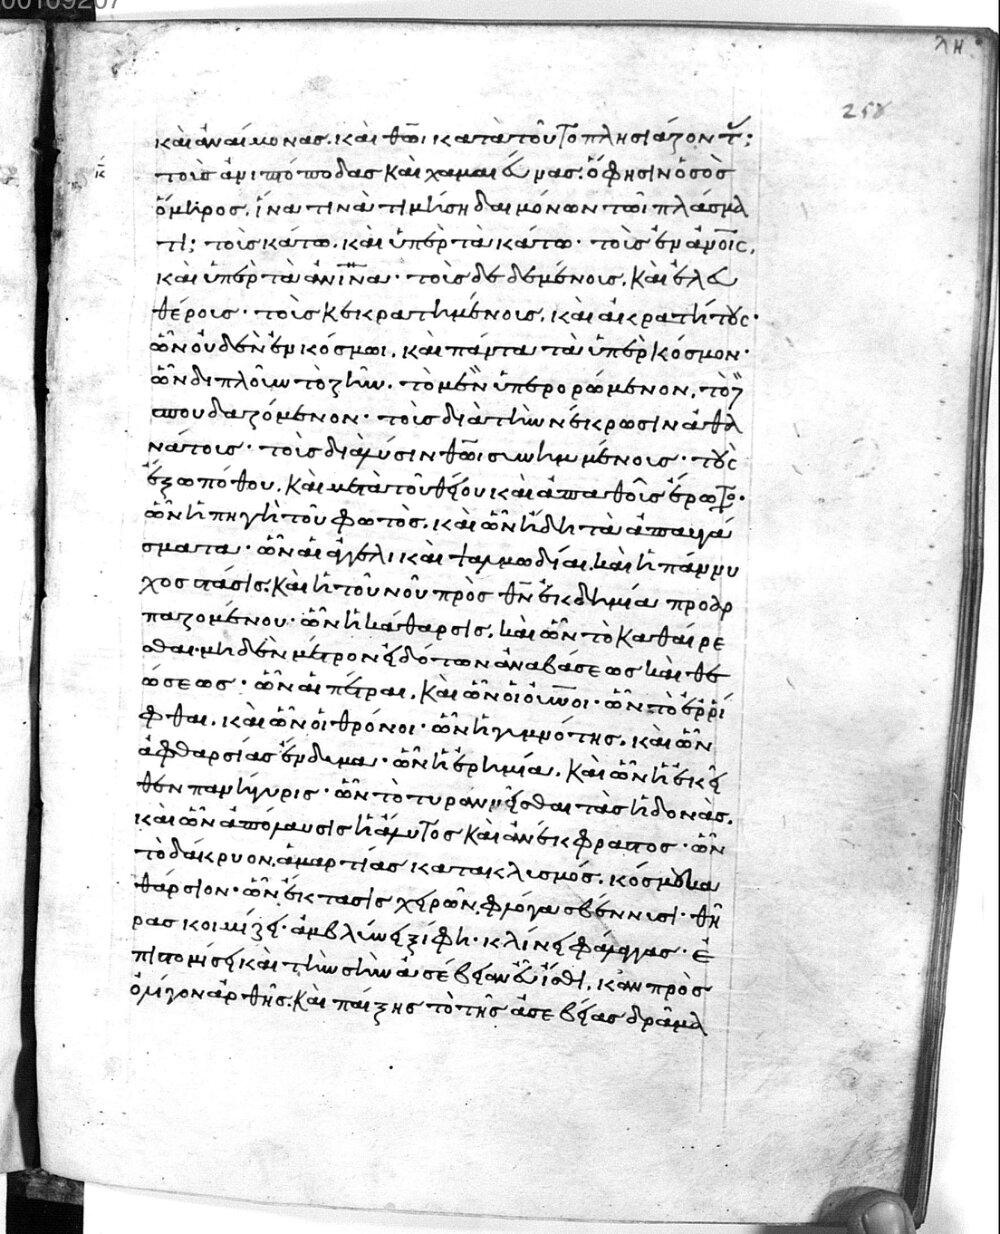 00109207
λη
258
καὶ ἀναίμονας. καὶ θ̅ῶι κατὰ τοῦτο πλησιάζοντ(ας);
τοὺς ἀνιπτόποδας καὶ χαμαιεύνας. ὅ φησιν ὁ σὸς
ὅμηρος. ἵνα τινὰ τιμήση δαιμόνων τῶι πλάσμα
τι; τοὺς κάτω. καὶ ὑπὲρ τὰ κάτω· τοὺς ἐν ἀν̅οις,
καὶ ὑπὲρ τὰ ἀν̅ινα· τοὺς δεδεμένους. καὶ ἐλευ
θέρους· τοὺς κεκρατημένους. καὶ ἀκρατήτους·
ὧν οὐδὲν ἐν κόσμωι. καὶ πάντα τὰ ὑπὲρ κόσμον·
ὧν διπλοῦν τὸ ζῆν. τὸ μὲν ὑπερορώμενον. τὸ δὲ
σπουδαζόμενον· τοὺς διὰ τὴν νέκρωσιν ἀθα
νάτους· τοὺς διὰ λύσιν θ̅ῶι συνημμένους· τοὺς
ἔξω πόθου. καὶ μετὰ τοῦ θείου καὶ ἀπαθοῦς ἔρωτο(ς)·
ὧν ἡ πηγὴ τοῦ φωτὸς. καὶ ὧν ἤδη τὰ ἀπαυγά
σματα· ὧν αἱ ἀγγελικαὶ ψαλμωδίαι. καὶ ἡ πάννυ
χος στάσις. καὶ ἡ τοῦ νοῦ πρὸς θ̅ν ἐκδημία προαρ
παζομένου· ὧν ἡ κάθαρσις. καὶ ὧν τὸ καθαίρε
σθαι· μηδὲν μέτρον εἰδότων ἀναβάσεως καὶ θε
ώσεως· ὧν αἱ πέτραι. καὶ ὧν οἱ οὐ̅νοι· ὧν τὸ ἐρρί
φθαι. καὶ ὧν οἱ θρόνοι· ὧν ἡ γυμνότης. καὶ ὧν
ἀφθαρσίας ἔνδυμα· ὧν ἡ ἐρημία. καὶ ὧν ἡ ἐκεῖ
θεν πανήγυρις· ὧν τὸ τυραννεῖσθαι τὰς ἡδονὰς.
καὶ ὧν ἀπόλαυσις ἡ ἄλυτος καὶ ἀνέκφραστος· ὧν
τὸ δάκρυον. ἁμαρτίας κατακλυσμός. κόσμου κα
θάρσιον· ὧν ἔκτασις χειρῶν. φλόγα σβέννυσι· θῆ
ρας κοιμίζει· ἀμβλύνει ξίφη· κλίνει φάλαγγας· ἐ
πιστομίσει καὶ τὴν σὴν ἀσέβειαν εὖ ἴσθι. κἂν πρὸς
ὀλίγον ἀρθῆς. καὶ παίξης τὸ τῆς ἀσεβείας δρᾶμα